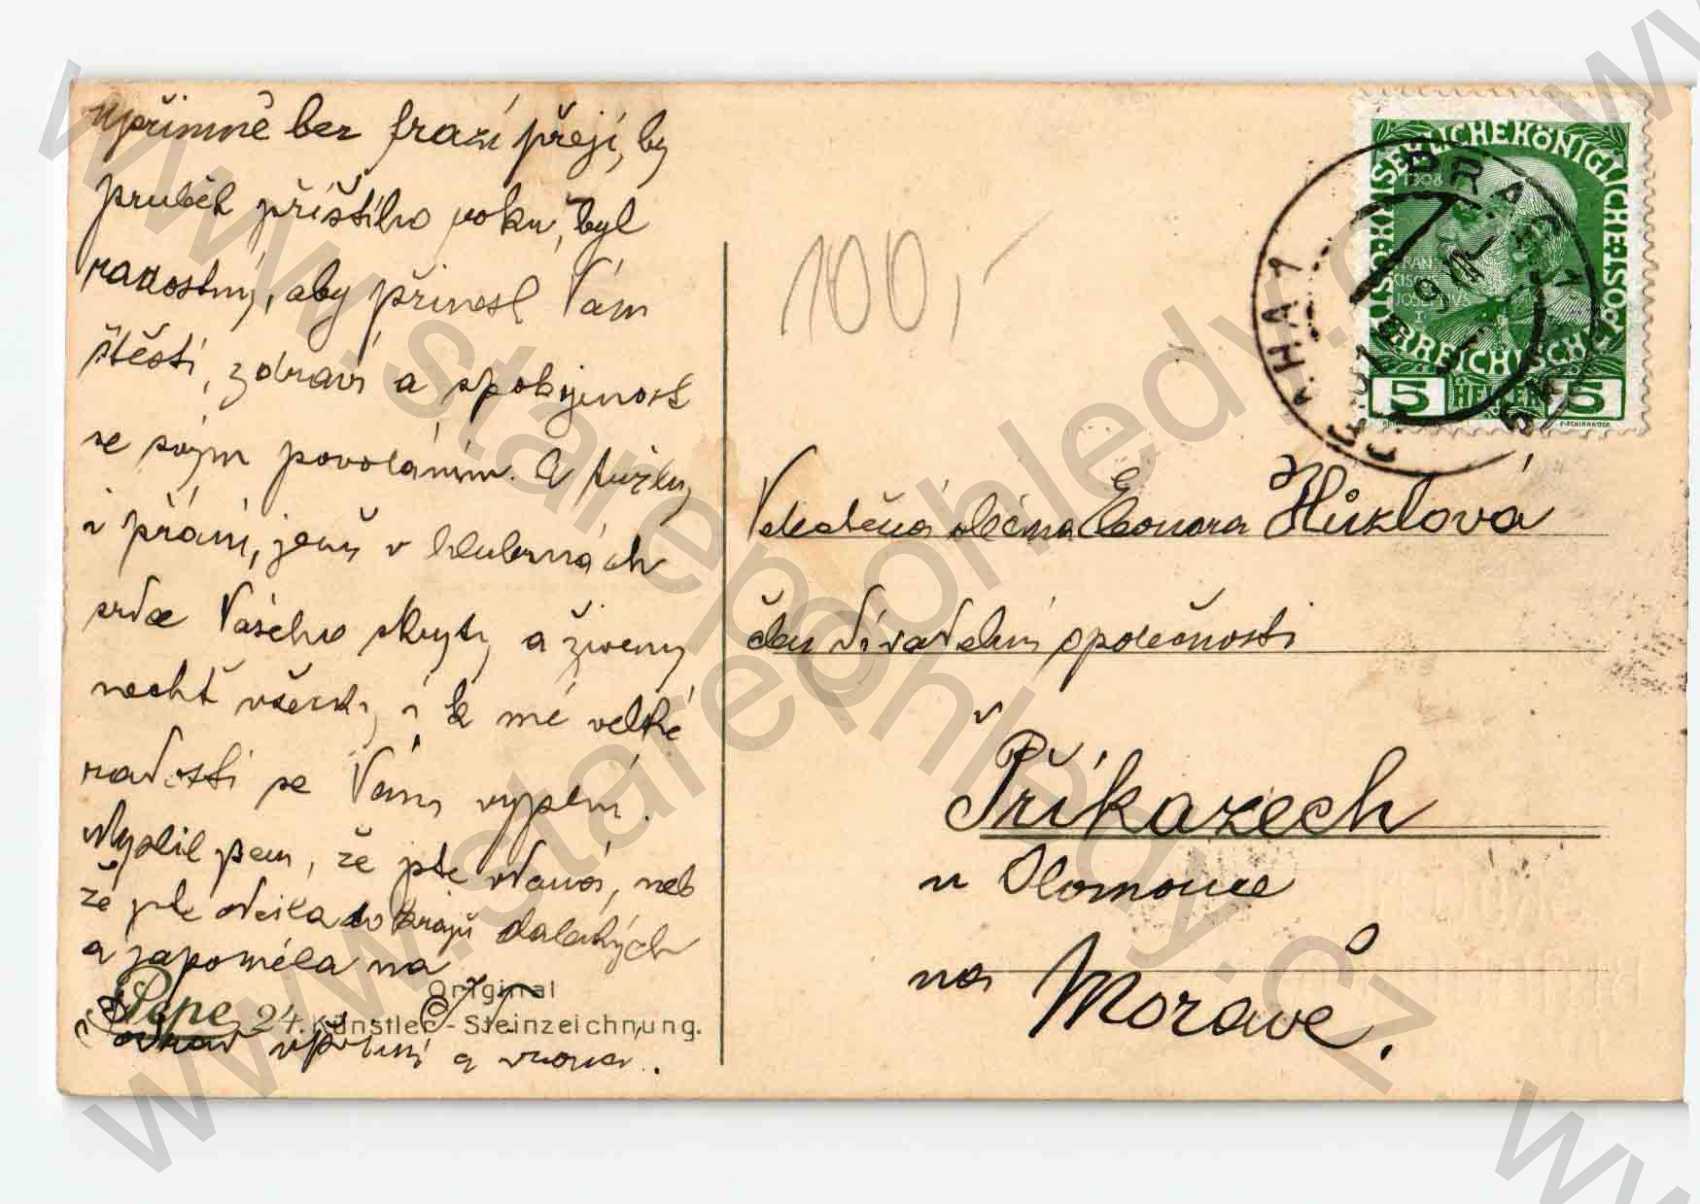 upřimně bez frazí přeji, by
průběh příštího roku, byl
radostný, aby přinesl Vám
štěstí, zdraví a spokojenost
se svým povoláním. A tužby
i přání, jenž v hlubinách
srdce Vašeho skryty a živeny
nechť všecky i k mé velké
radosti se Vám vyplní.
Myslil jsem, že jste vdaná, neb
že jste odešla do krajů dalekých
a zapoměla na
Original
Pepe 24. Künstler-Steinzeichnung.
a
100,-
KAISERLICHE KÖNIGLICHE ÖSTERREICHISCHE POST
1908
FRANCISCUS JOSEPHUS I
5 HELLER 5
PRAG 1
PRAHA 1
Velectěná slečna Eleonora Hűxlová
člen divadelní společnosti
v
Příkazech
u Olomouce
na Moravě.
www.starepohledy.cz
www.starepohledy.cz